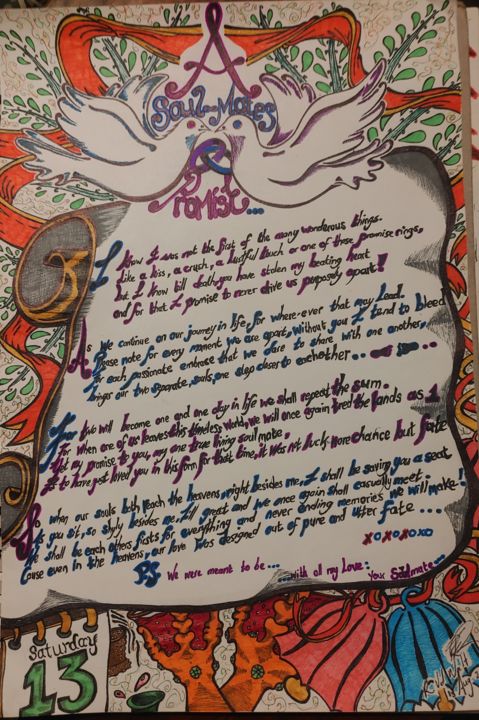 A
Soul-Mates
Promise...
I know I was not the first of the many wonderous things.
Like a kiss, a crush, a lustful touch or one of those promise rings,
but I know till death, you have stolen my beating heart
and for that I promise to never drive us purposely apart!
As we continue on our journey in life, for where-ever that may lead.
Please note for every moment we are apart, without you I tend to bleed
For each passionate embrase that we dare to share with one another,
brings our two separate, souls, one step closer to eachother...
For two will become one and one day in life we shall repeat the sum.
For when one of us leaves this timeless world, we will once again tred the lands as 1
Let my promise to you, my one true living soul mate,
to have just loved you in this form, for that time, it was not luck nore chance but fate
So when our souls both reach the heavens, right besides me, I shall be saving you a seat
As you sit, so shyly besides me, I'll great and we once again shall casually meet.
We shall be each others firsts for everything and never ending memories we will make!
Cause even in the heavens, our love was designed out of pure and utter fate....
xoxoxoxo
PS we were meant to be... ...with all my love:
Your Soulmate...
Saturday
13